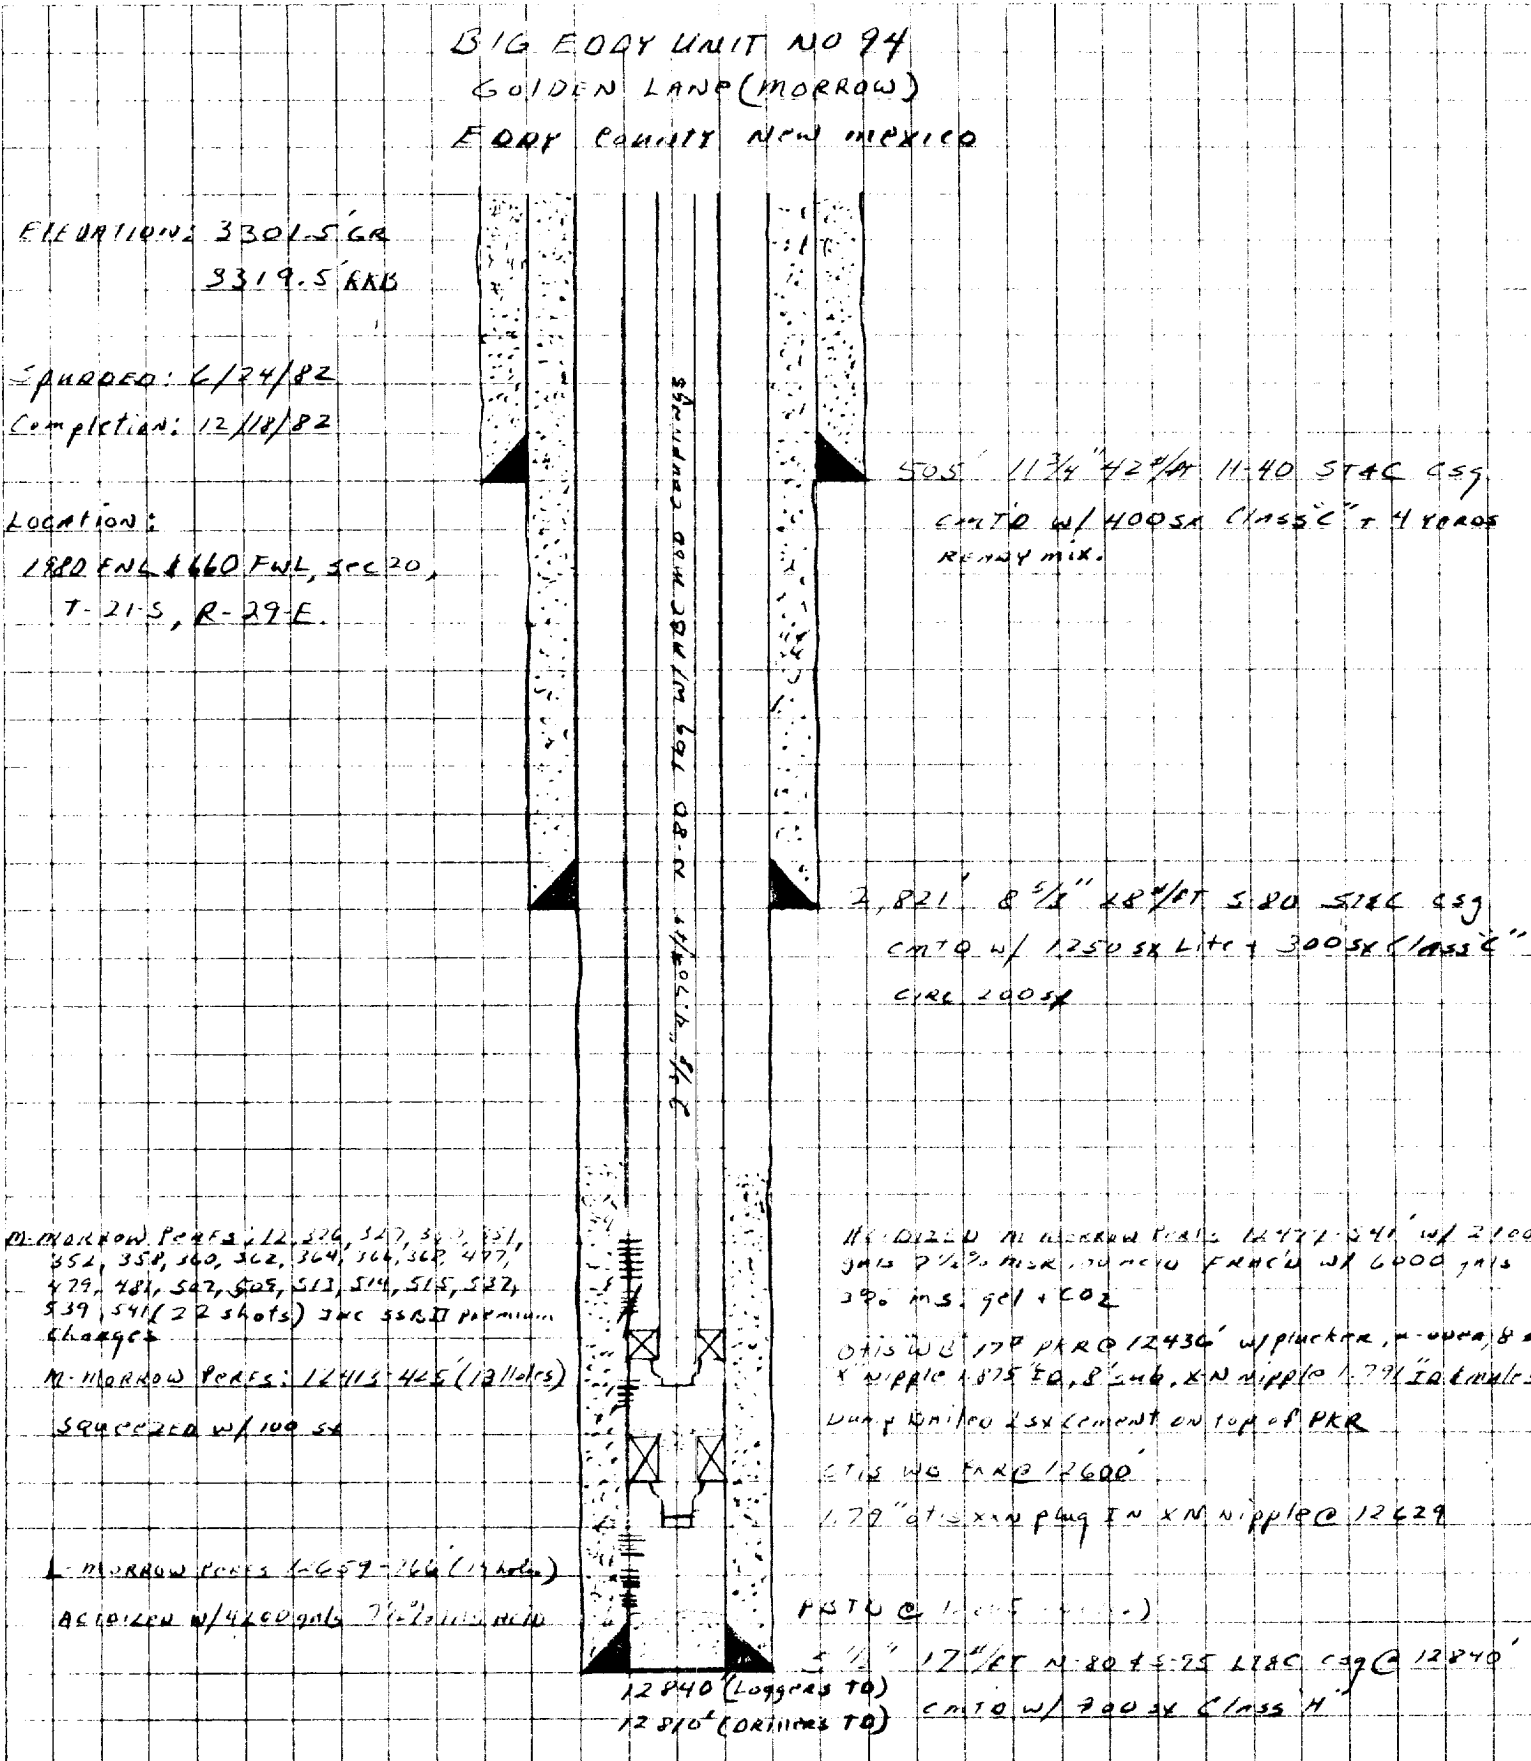 BIG EDDY UNIT NO 94
GOLDEN LANE (MORROW)
EDDY COUNTY NEW MEXICO
ELEVATION: 3301.5' GR
3319.5' RKB
SPUDDED: 6/24/82
Completion: 12/18/82
LOCATION:
1980 FNL & 660 FWL, Sec 20,
T-21-S, R-29-E.
2 7/8" 6.50#/ft N-80 Tbg w/ ABC Mod couplings
505' 11 3/4" 42#/ft H-40 ST&C csg
CMTD w/ 400 sx Class "C" + 4 YARDS
READY MIX.
2,821' 8 5/8" 28#/FT S-80 ST&C csg
CMTD w/ 1250 sx Lite + 300 sx Class "C"
CIRC 200 sx
M-MORROW PERFS: 12,326, 327, 351,
352, 358, 360, 362, 364, 366, 368, 477,
479, 481, 507, 509, 513, 514, 515, 537,
539, 541 (22 shots) SSB II premium
charges
M-MORROW PERFS: 12413-425' (13 Holes)
SQUEEZED w/ 100 sx
L-MORROW PERFS 12659-766' (holes)
ACIDIZED w/ 4200 gals 7 1/2%
ACIDIZED M MORROW PERFS 12477-541' w/ 2100
gals 7 1/2% FRAC'D w/ 6000 gals
3% m.s. gel + CO2
OTIS WB PKR @ 12436' w/ plucker, 8'
X nipple 1.875" ID, 8' sub, XN nipple 1.791" ID
Dump Bailed 2 sx cement on top of PKR
OTIS WB PKR @ 12600'
1.79" otis XN plug IN XN nipple @ 12629
PBTD @
5 1/2" 17#/FT N-80 & S-95 LT&C csg @ 12840'
CMTD w/ 700 sx Class "H"
12840' (Loggers TD)
12810' (Drillers TD)